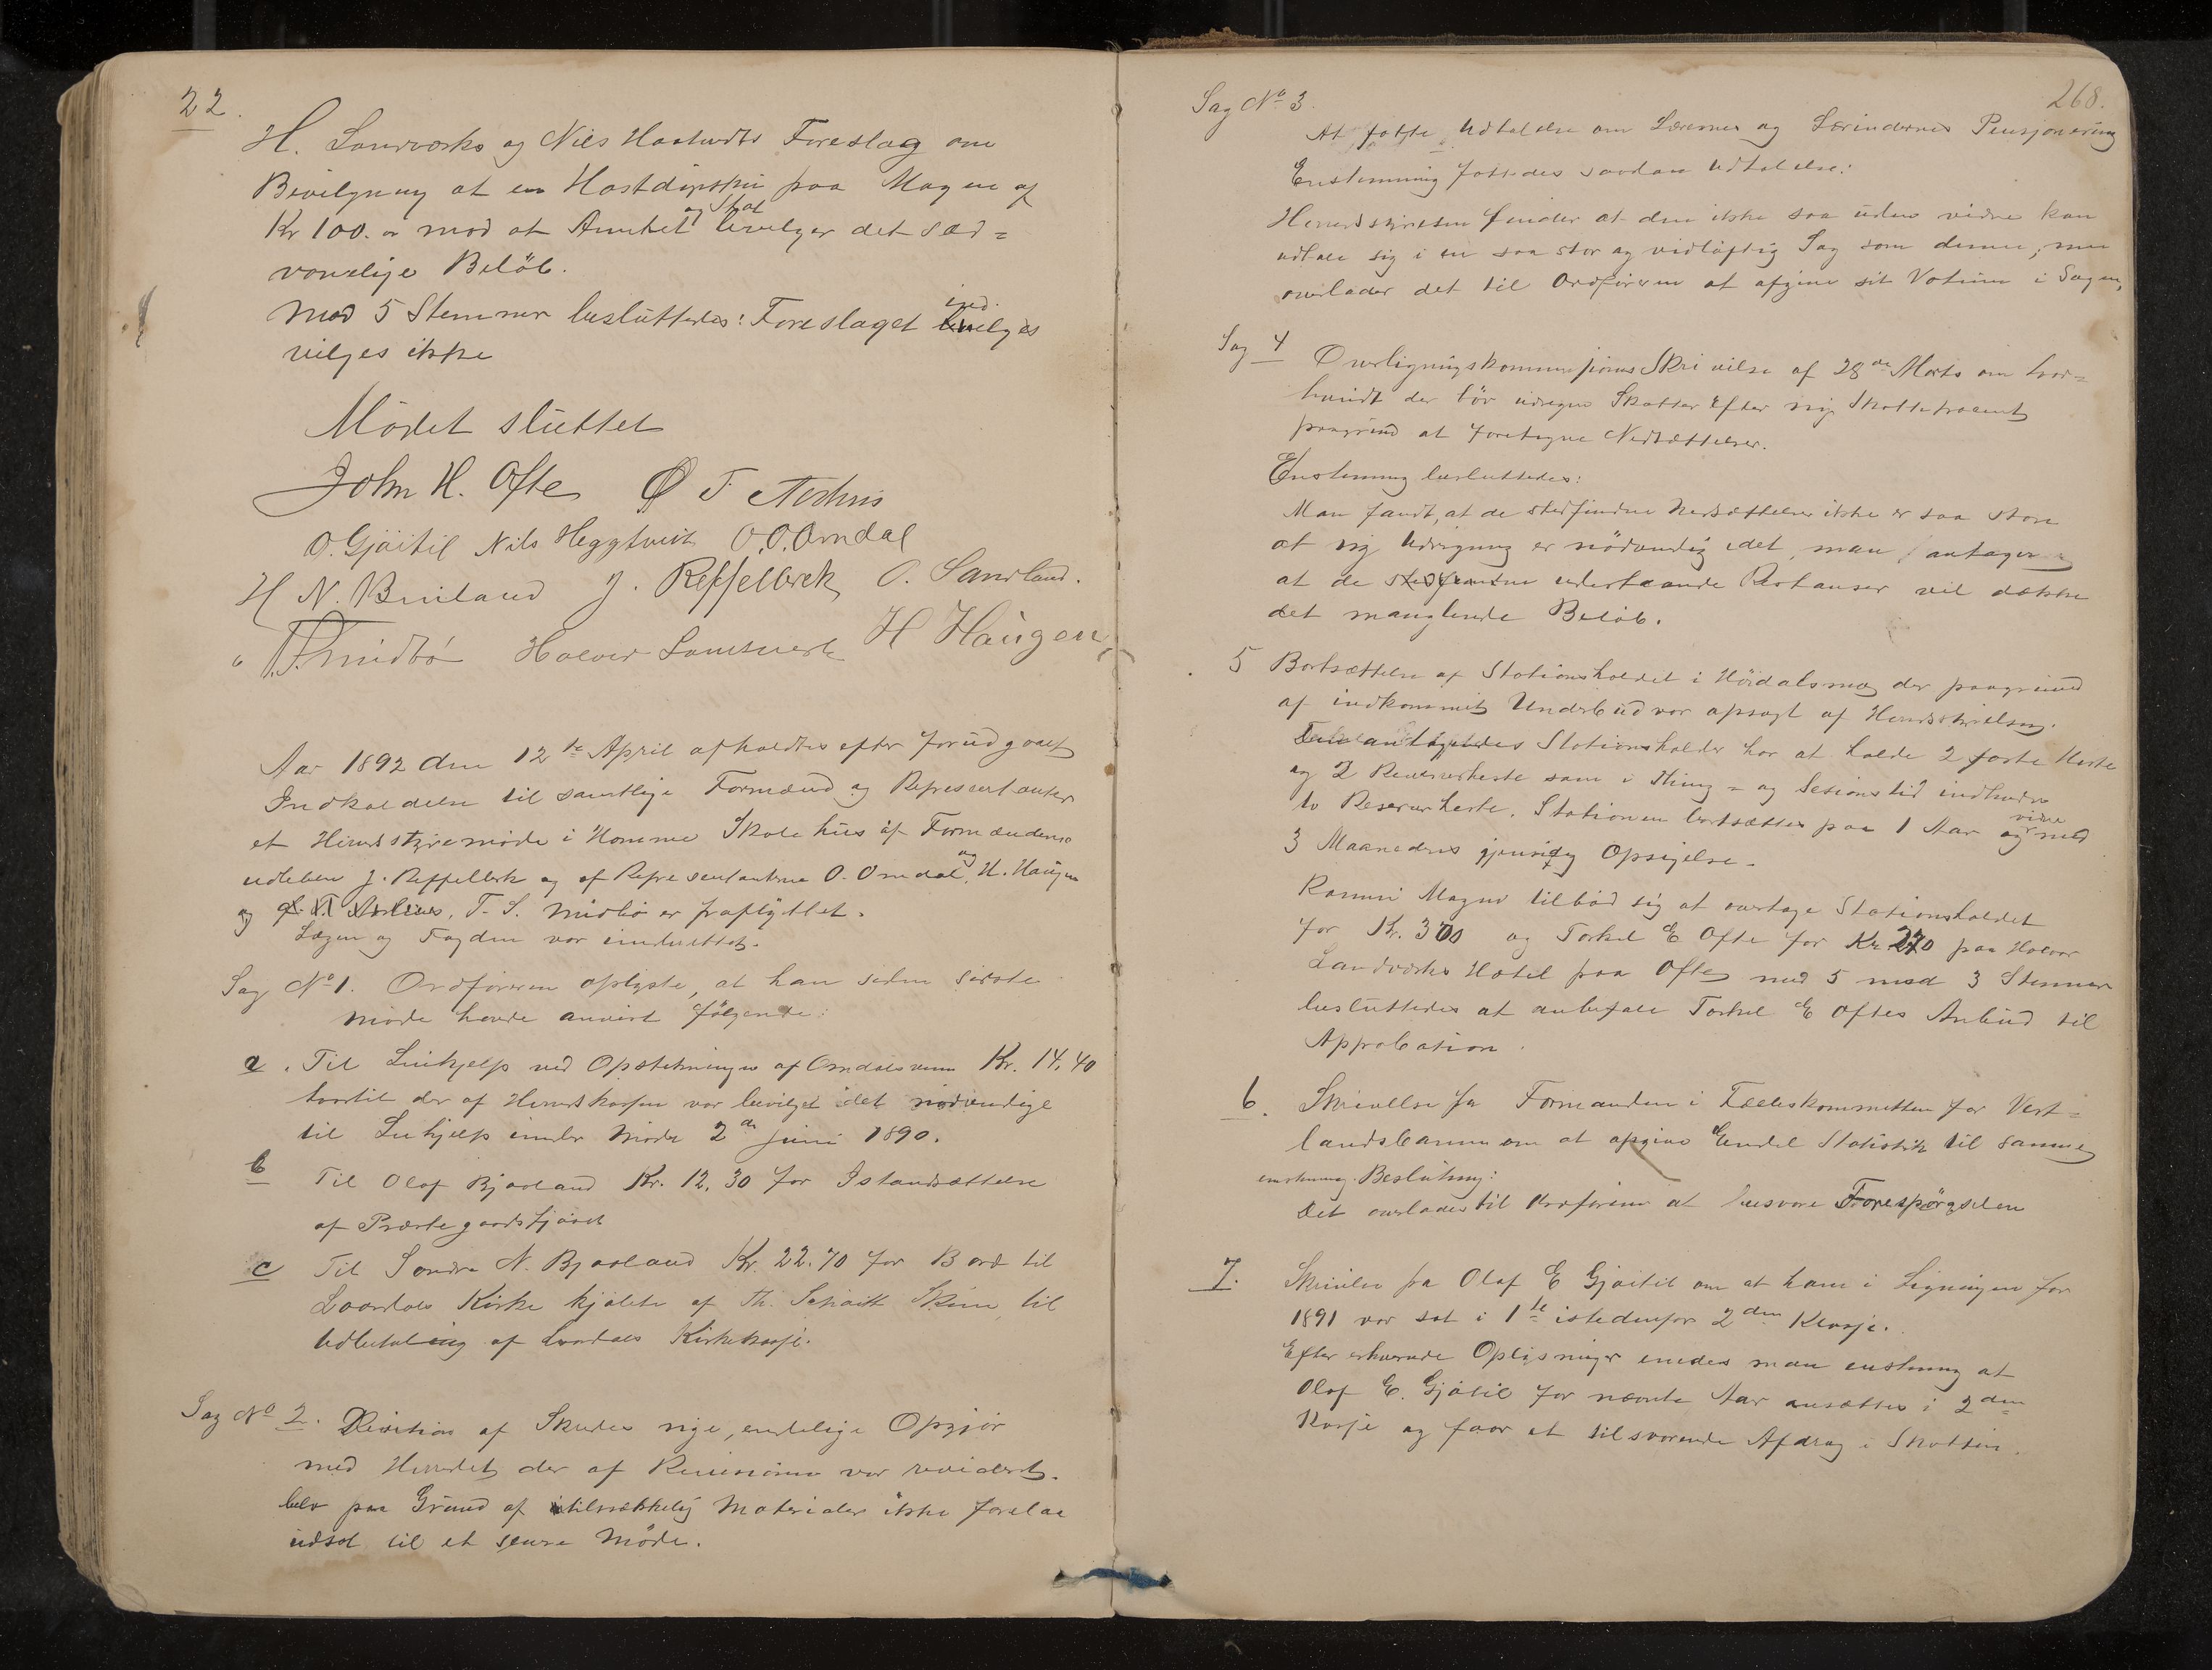 22.
H. Landværks og Nils Haatvedts Foreslag om
Bevilgning at en Høstdyrsku paa Mogen af
Kr 100. " mod at Amtet og Stat bevilger det sæd=
vanelige Beløb.
Med 5 Stemmer besluttedes: Foreslaget ind
vilges ikke
Mødet sluttet
John H. Ofte Ø T Aashus
O. Gjøitil Nils Heggtveit O.O. Omdal
H N. Briland J. Reffelbrek O. Sandland.
T.S. Midbö Halvor Landsverk H Haugen
Aar 1892 den 12te April afholdtes efter forudgaaet
Indkaldelse til samtlige Formænd og Representanter
et Herredsstyremøde i Homme Skolehus af Formændene
udebleve J. Reffelbrek og af Representanterne O. Omdal, og H. Haugen
og T. S. Midbö er fraflyttet.
Lægen og Fogden var underrettet.
Sag No 1. Ordføreren oplyste, at han siden sidste
Møde havde anvist følgende:
a. Til Liehjelp ved Opstikningen af Omdalsveien Kr. 14,40
hvortil der af Herredskassen var bevilget det nødvendige
til Liehjelp under Møde 2den Juni 1890.
b Til Olaf Bjaaland Kr. 12,30 for Istandsættelse
af Præstegaardsfjøset
c Til Sondre N. Bjaaland Kr. 22,70 for Bord til
Laardals Kirke kjøbte af Th. Schøitt Skien til
Udbetaling af Laardals Kirkekasse.
Sag No 2. Decition af Skudes nye, endelige Opgjør
med Herredet der af Revisionen var revideret.
blev paa Grund af tilstrækkelig Materialer ikke forelaa
udsat til et senere Møde.
268.
Sag No 3.
At fatte Udtalelse om Lærernes og Lærindernes Pensjonering
Enstemmig fattedes saadan Udtalelse:
Herredsstyrelsen finder at den ikke saa uden videre kan
udtale sig i en saa stor og vidløftig Sag som denne, men
overlader det til Ordføreren at afgive sit Votum i Sagen,
Sag 4 Overligningskommissionens Skrivelse af 28de Marts om hvor=
hvidt der bør udregnes Skatter efter ny Skatteprocent
paagrund at foretagne Nedsættelser.
Enstemmig besluttedes:
Man fandt, at de stedfundne Nedsættelser ikke er saa store
at ny Udregning er nødvendig idet man antager
at de udestaaende Restanser vil dække
det manglende Beløb.
5 Bortsættelse af Stationsholdet i Høidalsmo, der paagrund
af indkommit Underbud var opsagt af Herredsstyrelsen.
Stationsholder har at holde 2 faste Heste
og 2 Reserveheste som i Thing= og Sesionstid indtræder
to Reserveheste. Stationen bortsættes paa 1 Aar og videre med
3 Maaneders gjensidig Opsigelse.
Magne tilbød sig at overtage Stationsholdet
for Kr. 300 og Torkel E Ofte for Kr 270 paa Halvor
Landværks Hotel paa Ofte, med 5 mod 3 Stemmer
besluttedes at anbefale Torkel E Oftes Anbud til
Approbation.
6. Skrivelse fra Formanden i Fælleskommitten for Vest=
landsbanen om at opgive Endel Statistik til samme
enstemmig Beslutning:
Det overlades til Ordføreren at besvare Forespørgselen
7. Skrivelse fra Olaf E Gjøitil om at han i Ligningen for
1891 var sat i 1te istedenfor 2den Klasse.
Efter erhvervede Oplysninger enedes man enstemmig at
Olaf E. Gjøtil for nævnte Aar ansættes i 2den
Klasse og faar et tilsvarende Afdrag i Skatten.